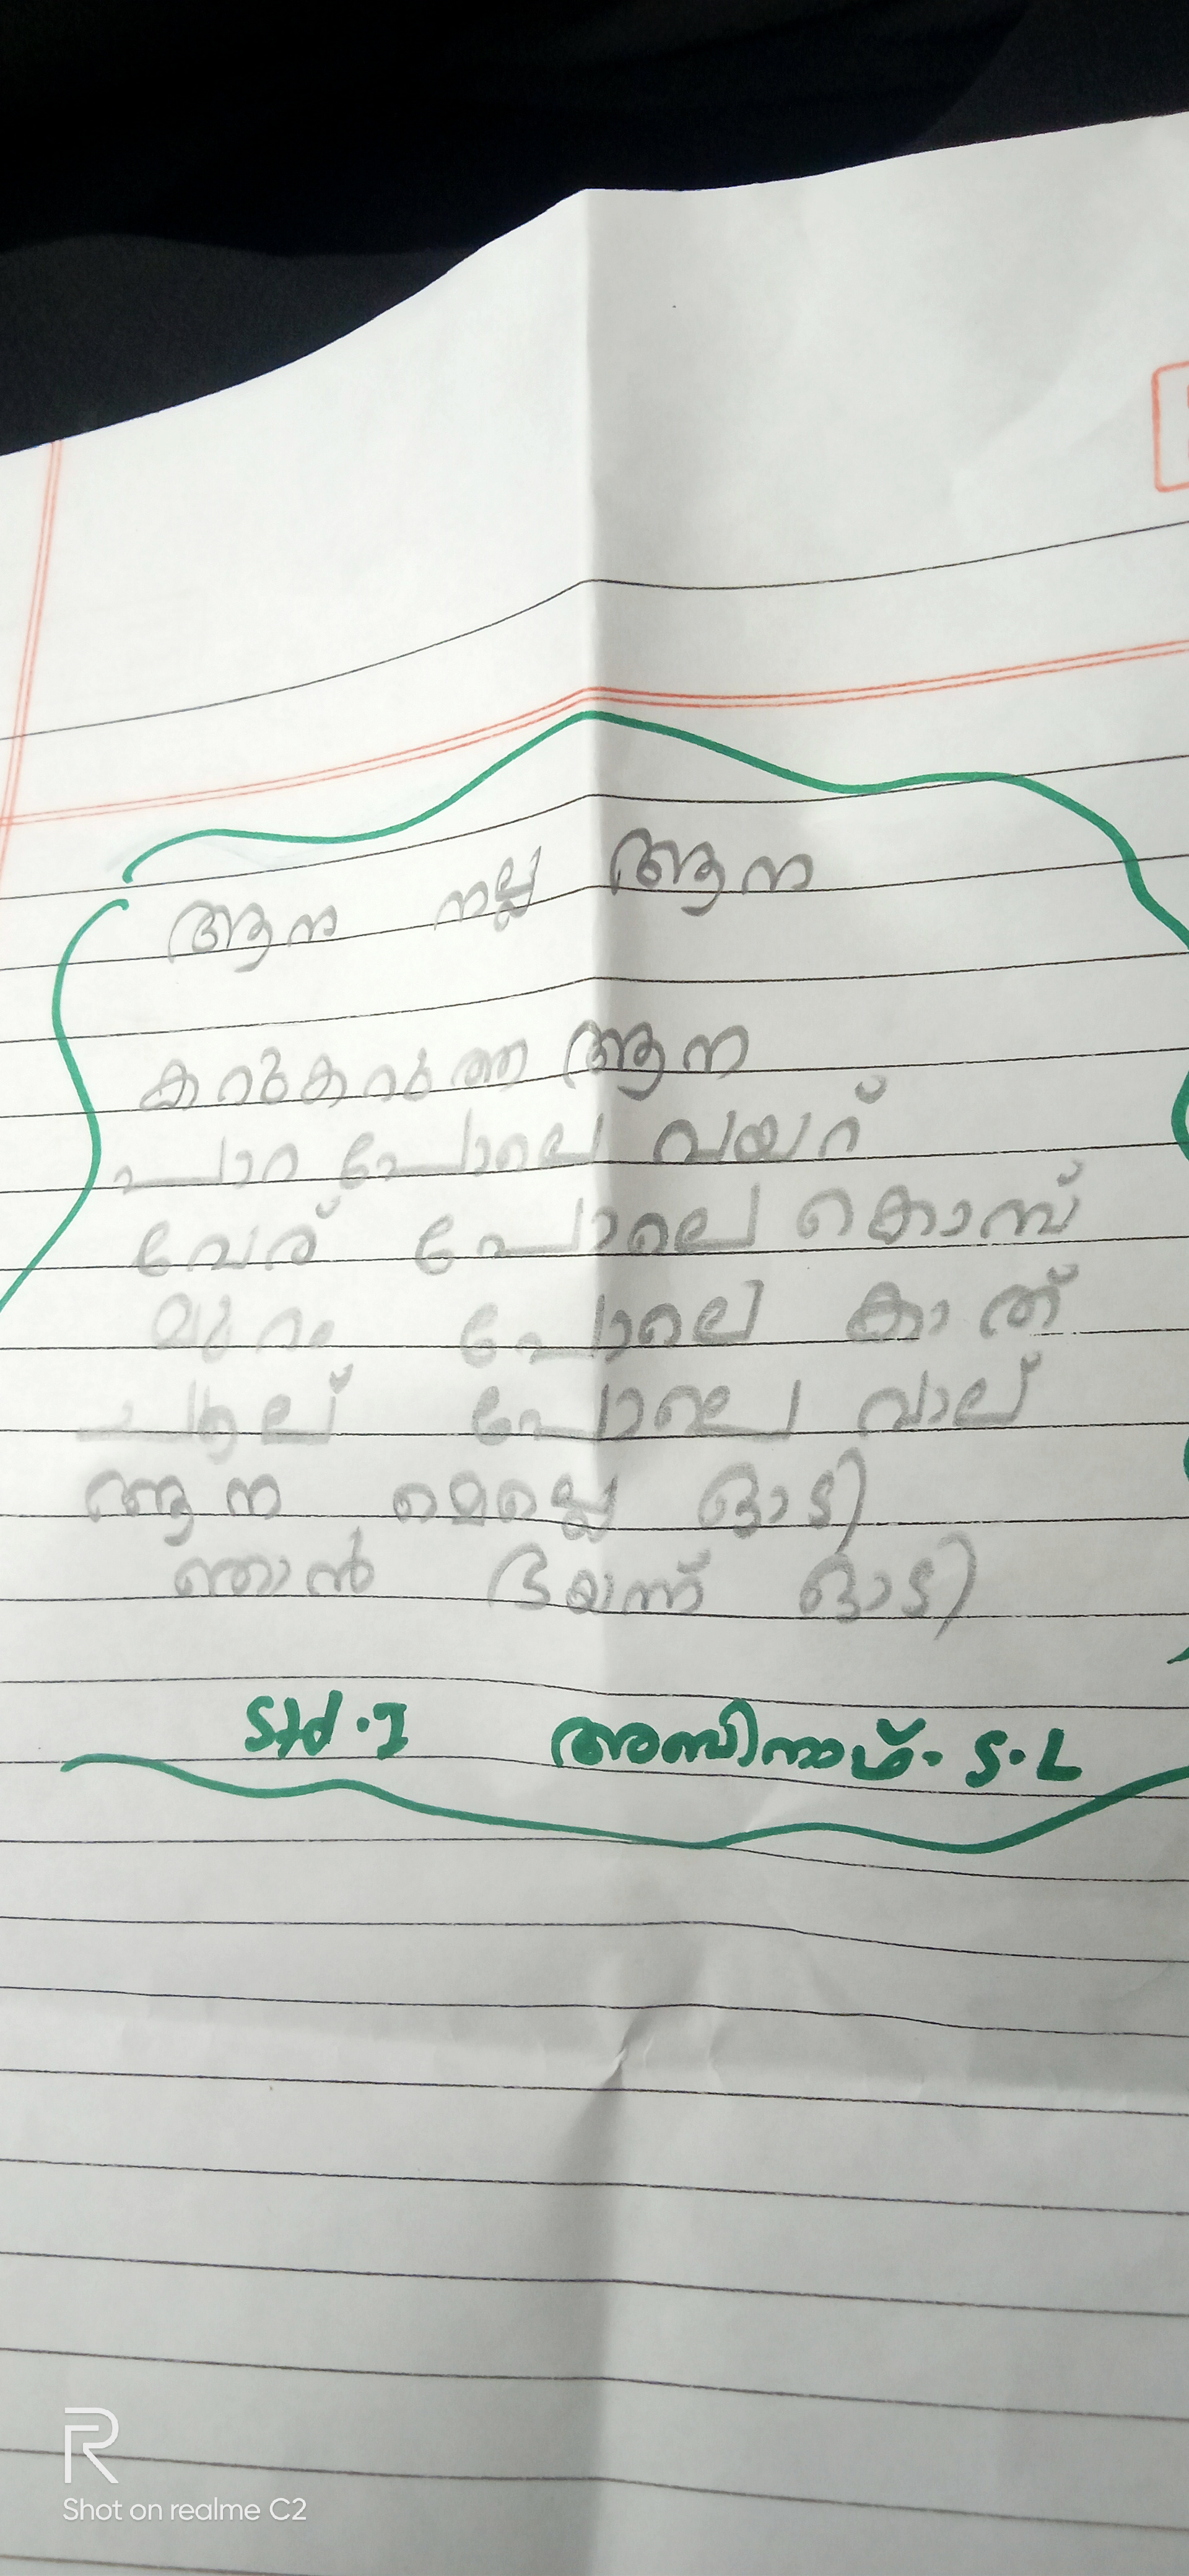 ആന നല്ല ആന
കറുകറുത്ത ആന
പാറ പോലെ വയറ്
വേര് പോലെ കൊമ്പ്
മുറം പോലെ കാത്
ചൂല് പോലെ വാല്
ആന മെല്ലെ ഓടി
ഞാൻ ഭയന്ന് ഓടി
Std.I അബിനാഥ്. S.L
Shot on realme C2